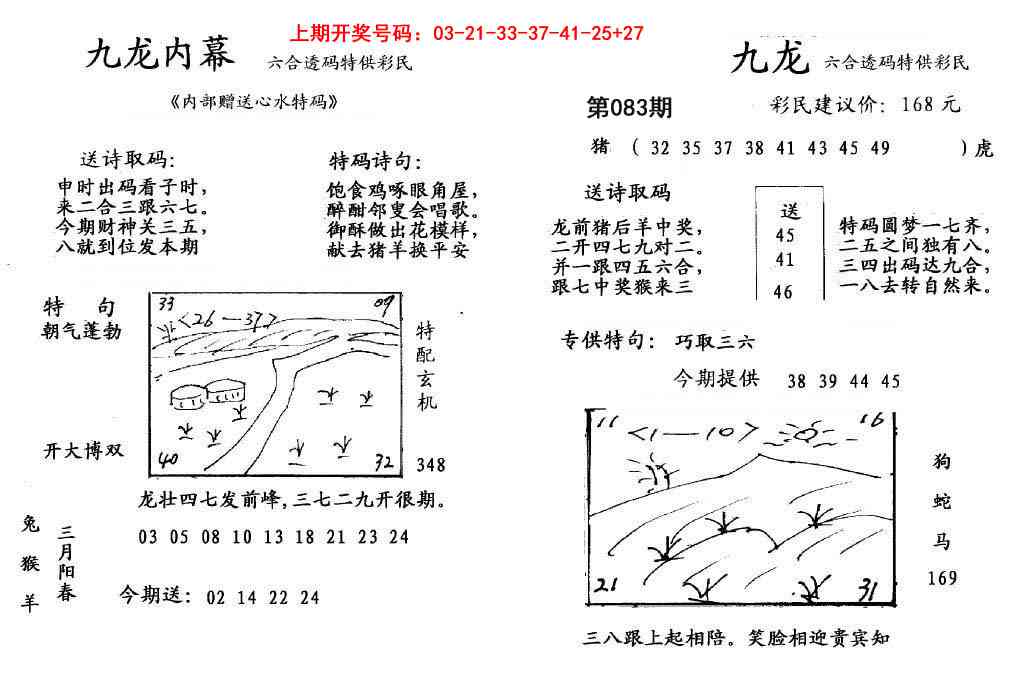 上期开奖号码：03-21-33-37-41-25+27
九龙内幕 六合透码特供彩民
《内部赠送心水特码》
送诗取码：
申时出码看子时，
来二合三跟六七。
今期财神关三五，
八就到位发本期
特码诗句：
饱食鸡啄眼角屋，
醉酣邻叟会唱歌。
御酥做出花模样，
献去猪羊换平安
特 句
朝气蓬勃
开大博双
33
09
<26—37>
40
32
特配玄机
348
龙壮四七发前峰，三七二九开很期。
兔
猴
羊
三月阳春
03 05 08 10 13 18 21 23 24
今期送：02 14 22 24
九龙 六合透码特供彩民
第083期 彩民建议价：168元
猪 ( 32 35 37 38 41 43 45 49 )虎
送诗取码
龙前猪后羊中奖，
二开四七九对二。
并一跟四五六合，
跟七中奖猴来三
送
45
41
46
特码圆梦一七齐，
二五之间独有八。
三四出码达九合，
一八去转自然来。
专供特句： 巧取三六
今期提供 38 39 44 45
11
16
<1—10>
21
31
狗
蛇
马
169
三八跟上起相陪。笑脸相迎贵宾知